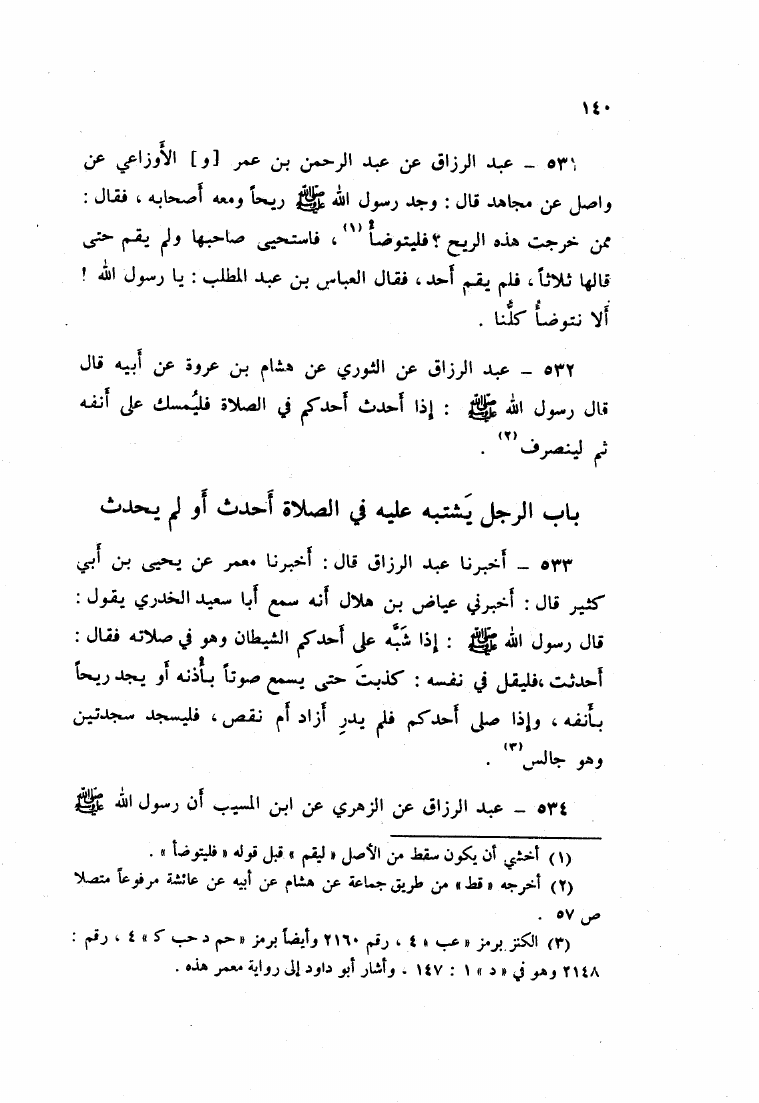 ١٤٠
٥٣١ - عبد الرزاق عن عبد الرحمن بن عمر [و] الأَوزاعي عن
واصل عن مجاهد قال : وجد رسول الله ﷺ ريحاً ومعه أَصحابه ، فقال :
ممن خرجت هذه الريح ؟ فليتوضأْ (١) ، فاستحيى صاحبها ولم يقم حتى
قالها ثلاثاً ، فلم يقم أَحد ، فقال العباس بن عبد المطلب : يا رسول الله !
أَلا نتوضأُ كلُّنا .
٥٣٢ - عبد الرزاق عن الثوري عن هشام بن عروة عن أَبيه قال
قال رسول الله ﷺ : إِذا أَحدث أَحدكم في الصلاة فليُمسك على أَنفه
ثم لينصرف (٢) .
باب الرجل يَشتبه عليه في الصلاة أَحدث أَو لم يحدث
٥٣٣ - أَخبرنا عبد الرزاق قال : أَخبرنا معمر عن يحيى بن أَبي
كثير قال : أَخبرني عياض بن هلال أَنه سمع أَبا سعيد الخدري يقول :
قال رسول الله ﷺ : إِذا شَبَّه على أَحدكم الشيطان وهو في صلاته فقال :
أَحدثت ،فليقل في نفسه : كذبتَ حتى يسمع صوتاً بأُذنه أَو يجد ريحاً
بأَنفه ، وإِذا صلى أَحدكم فلم يدرِ أَزاد أَم نقص ، فليسجد سجدتين
وهو جالس (٣) .
٥٣٤ - عبد الرزاق عن الزهري عن ابن المسيب أَن رسول الله ﷺ
(١) أخشى أن يكون سقط من الأصل « ليقم » قبل قوله « فليتوضأ » .
(٢) أخرجه « قط » من طريق جماعة عن هشام عن أبيه عن عائشة مرفوعاً متصلا
ص ٥٧ .
(٣) الكنز برمز « عب » ٤ ، رقم ٢١٦٠ وأيضاً برمز « حم د حب ك » ٤ ، رقم :
٢١٤٨ وهو في « د » ١ : ١٤٧ . وأشار أبو داود إلى رواية معمر هذه .